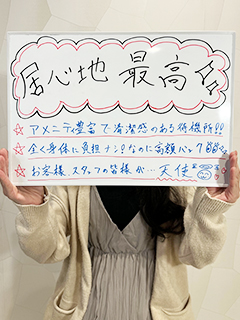 居心地 最高♂♂
☆ アメニティ豊富で清潔感のある待機所!!
☆ 全く身体に負担ナシ!なのに高額バック
☆ お客様、スタッフの皆様が…天使